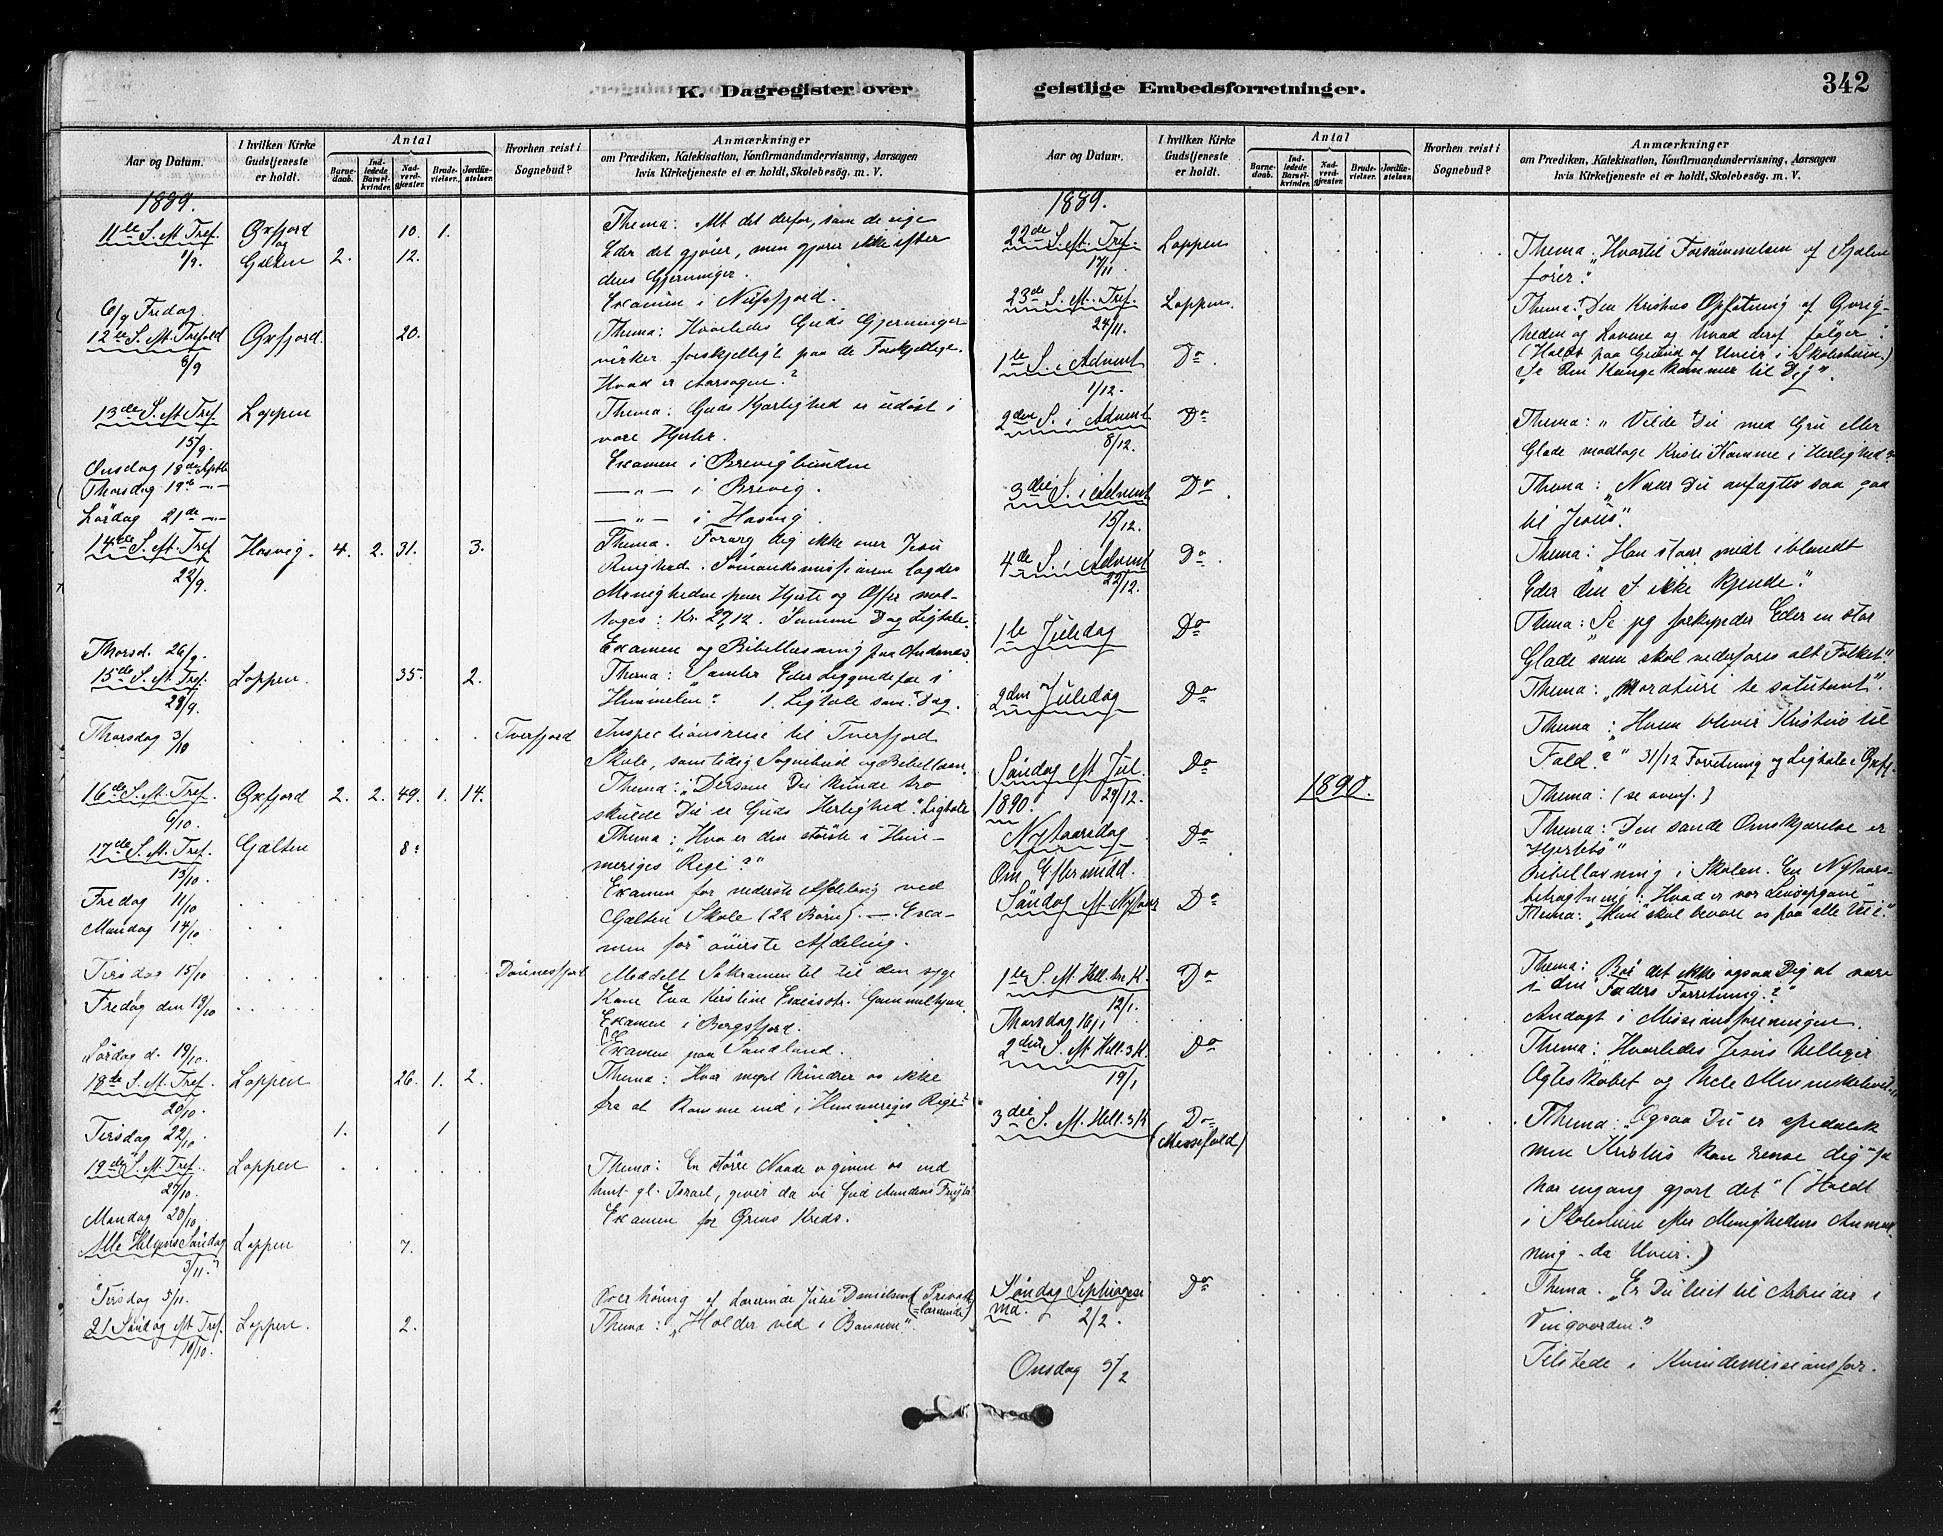 K. Dagregister over
Aar og Datum.
I hvilken Kirke
Gudstjeneste
er holdt.
Antal
Barne-
daab.
Ind-
ledede
Barsel-
kvinder.
Nad-
verd-
gjester.
Brude-
vielser.
Jordfæ-
stelser.
Hvorhen reist i
Sognebud?
Anmærkninger
om Prædiken, Katekisation, Konfirmandundervisning, Aarsagen
hvis Kirketjeneste ei er holdt, Skolebesøg. m. V.
1889.
11te S. M. Tref. Øxfjord 10. 1. Thema: Alt det derfor, som de sige
og Eder det gjører, men gjører ikke efter
1/9. Galten 2. 12. deres Gjerninger.
6/9 Fredag Examen i Nufsfjord.
12te S. M. Trefold Øxfjord. 20. Thema: Hvorledes Guds Gjerninger
8/9 virker forskjelligt paa de Forskjellige.
Hvad er Aarsagen?
13de S. M. Tref. Loppen Thema: Guds Kjærlighed er udøst i
15/9. vore Hjerter.
Onsdag 18de Septb Examen i Brevigbunden
Thorsdag 19de —"— —"— i Brevig.
Lørdag 21de —"— —"— i Hasvig.
14de S. M. Tref Hasvig. 4. 2. 31. 3. Thema. Forarg dig ikke over Jesu
22/9. Ringhed. Sømandsmissionen lagdes
Menigheden paa Hjerte og Offer mod-
toges: Kr. 27,12. Samme Dag Ligtale.
Thorsd. 26/9. Examen og Bibellæsning paa Andenæs.
15de S. M. Tref. Loppen. 35. 2. Thema: Samler Eder Liggendefæ i
29/9. Himmelen". 1. Ligtale sam. Dag.
Thorsdag 3/10 Tverfjord Inspectionsreise til Tverfjord
Skole, samtidig Sognebud og Bibellæsn.
16de S. M. Tref. Øxfjord 2. 2. 49. 1. 14. Thema: "Dersom Du kunde tro
6/10. skulde Du se Guds Herlighed". Ligtale
17de S. M. Tref. Galten 8. Thema: Hvo er den største i Him-
13/10. meriges Rige?"
Fredag 11/10 Examen for nederste Afdeling ved
Galten Skole (22 Børn). — Exa-
Mandag 14/10. men for øverste Afdeling.
Tirsdag 15/10 Dønnesfjord Meddelt Sakramentet til den syge
Kone Eva Kirstine
Fredag den 18/10 Examen i Bergsfjord.
Lørdag d. 19/10. Examen paa Sandland.
18de S. M. Tref. Loppen 26. 1. 2. Thema: Hvor meget hindrer os ikke
20/10. fra at komme ind i Himmeriges Rige?
Tirsdag 22/10 1. 1
19de S. M. Tref. Loppen Thema: En større Naade er given os end
27/10. hint gl. Israel, giver da vi Gud Aandens Frugter
Mandag 28/10. Examen for Grens Kreds.
Alle Helgens Søndag Loppen 7.
3/11.
Tirsdag 5/11. Overhøring af Lærerinde Julie Danielsen (Privat-
lærerinde)
21 Søndag M. Tref. Loppen. 2. Thema: "Holder ved i Bønnen".
10/10.
geistlige Embedsforretninger.
342
Aar og Datum.
I hvilken Kirke
Gudstjeneste
er holdt.
Antal
Barne-
daab.
Ind-
ledede
Barsel-
kvinder.
Nad-
verd-
gjester.
Brude-
vielser.
Jordfæ-
stelser.
Hvorhen reist i
Sognebud?
Anmærkninger
om Prædiken, Katekisation, Konfirmandundervisning, Aarsagen
hvis Kirketjeneste ei er holdt, Skolebesøg. m. V.
1889.
22de S. M. Tref. Loppen Thema: "Hvortil Forsømmelsen af Sjælen
17/11. fører".
23de S. M. Tref. Loppen. Thema: "Den Kristnes Opfatning af Øvrig-
24/11. heden og Lovene og hvad deraf følger".
(Holdt paa Grund af Uveir i Skolestuen.)
1ste S. i Advent Do "Se din Konge kommer til Dig".
1/12.
2den S. i Advent Do Thema: "Vilde Du med Gru eller
8/12. Glæde modtage Kristi Komme i Herlighed?
3die S. i Advent Do Thema: "Naar Du anfægtes saa gaa
15/12. til Jesus".
4de S. i Advent Do Thema: "Han staar midt iblandt
22/12. Eder den I ikke kjende".
1ste Juledag Do Thema: "Se jeg forkynder Eder en stor
Glæde som skal vederfares alt Folket".
2den Juledag Do Thema: "Morature te salutant".
Thema: "Hvem bliver Kristus til
Søndag eft Jul. Do Fald?" 31/12 Forretning og Ligtale i Øxfj.
29/12. 1890. Thema: (se ovenf.)
1890.
Nytaarsdag Do Thema: "Den sande Omskjærelse er
Hjertets"
Om Eftermidd. Bibellæsning i Skolen. En Nytaars-
betragtning: "Hvad er vor Livsopgave"
Søndag M. Nytaar Do Thema: "Han skal bevare os paa alle Veie".
1ste S. M. Hell. tre K. Do Thema: Bør det ikke ogsaa Dig at være
12/1. i din Faders Forretning?"
Thorsdag 16/1 Andagt i Missionsforeningen.
2den S. M. Hell. 3 K. Do Thema: "Hvorledes Jesus helliger
19/1 Ægteskabet og hele Menneskelivet"
3die S. M. Hell. 3 K Do Thema: "Ogsaa Du er spedalsk
(Messefald) men Kristus kan rense dig - ja
har engang gjort det" (Holdt
i Skolestuen efter Menighedens Anmod-
ning - da Uveir.)
Søndag Septuagesi Do Thema: "Er Du leiet til Arbeider i
ma. 2/2. Vingaarden?"
Onsdag 5/2 Tilstede i Kvindemissionsfor.